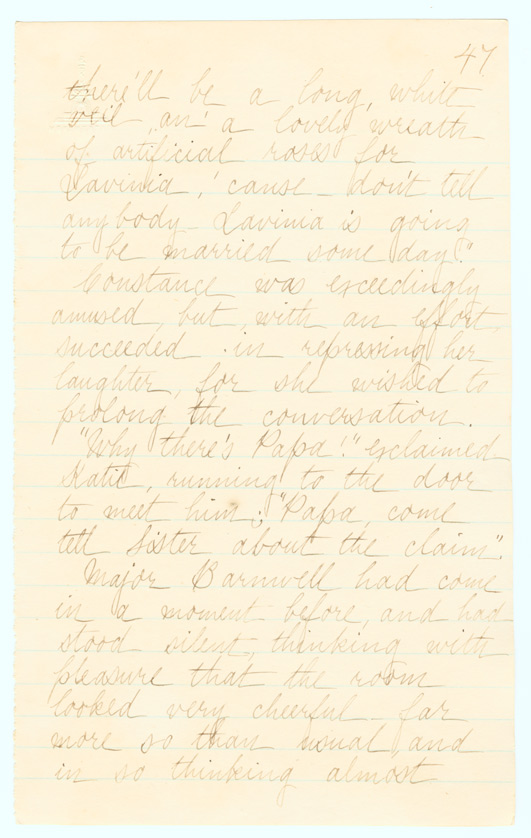 47
there'll be a long, white
veil an' a lovely wreath
of artificial roses for
Lavinia, 'cause - don't tell
anybody - Lavinia is going
to be married some day."
Constance was exceedingly
amused, but with an effort,
succeeded in repressing her
laughter, for she wished to
prolong the conversation.
"Why there's Papa!" exclaimed
Katie, running to the door
to meet him; "Papa, come
tell Sister about the claim".
Major Barnwell had come
in a moment before, and had
stood silent, thinking with
pleasure that the room
looked very cheerful - far
more so than usual, and
in so thinking almost